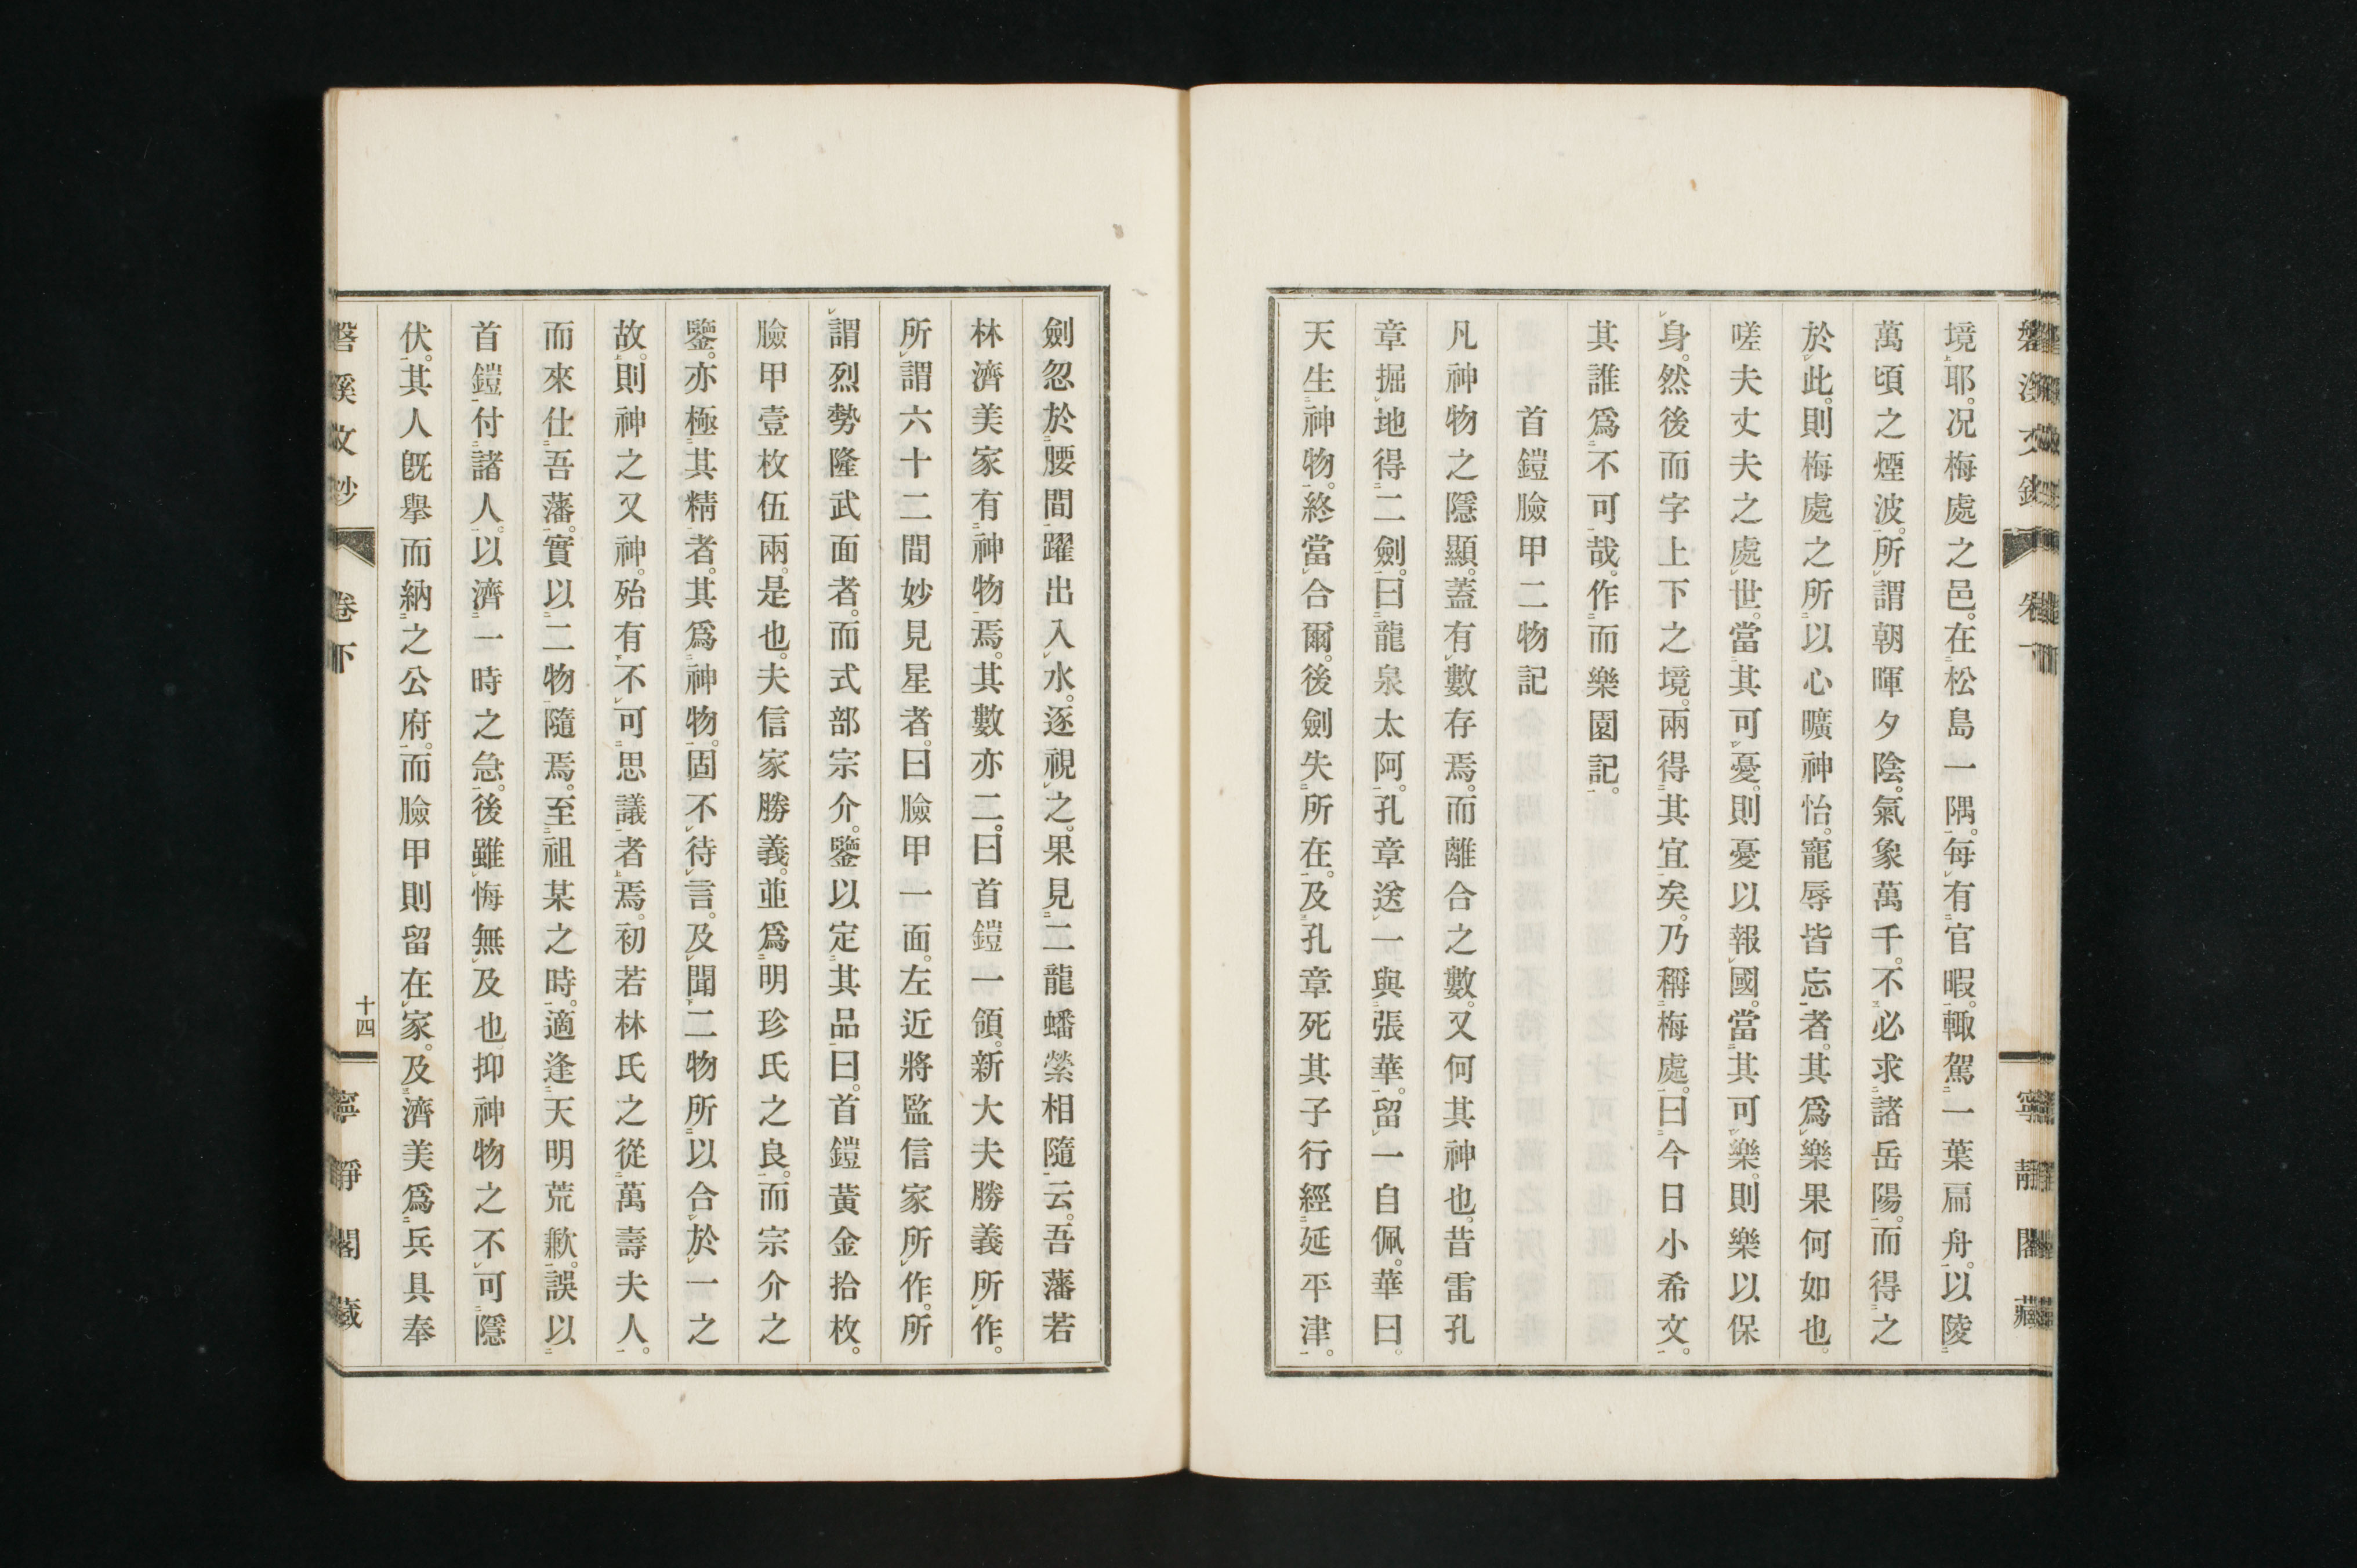 境耶。况梅處之邑。在松島一隅。每有官暇。輙駕一葉扁舟。以陵
萬頃之煙波。所謂朝暉夕陰。氣象萬千。不必求諸岳陽。而得之
於此。則梅處之所以心曠神怡。寵辱皆忘者。其爲樂果何如也。
嗟夫丈夫之處世。當其可憂。則憂以報國。當其可樂。則樂以保
身。然後而字上下之境。兩得其宜矣。乃稱梅處。曰今日小希文。
其誰爲不可哉。作而樂園記。
首鎧臉甲二物記
凡神物之隱顯。蓋有數存焉。而離合之數。又何其神也。昔雷孔
章掘地得二劍。曰龍泉太阿。孔章送一與張華。留一自佩。華曰。
天生神物。終當合爾。後劍失所在。及孔章死其子行經延平津。
劍忽於腰間躍出入水。逐視之。果見二龍蟠縈相隨云。吾藩若
林濟美家有神物焉。其數亦二。曰首鎧一領。新大夫勝義所作。
所謂六十二間妙見星者。曰臉甲一面。左近將監信家所作。所
謂烈勢隆武面者。而式部宗介。鑒以定其品曰。首鎧黃金拾枚。
臉甲壹枚伍兩。是也。夫信家勝義。並爲明珍氏之良。而宗介之
鑒。亦極其精者。其爲神物。固不待言。及聞二物所以合於一之
故。則神之又神。殆有不可思議者焉。初若林氏之從萬壽夫人。
而來仕吾藩。實以二物隨焉。至祖某之時。適逢天明荒歉。誤以
首鎧付諸人。以濟一時之急。後雖悔無及也。抑神物之不可隱
伏。其人旣擧而納之公府。而臉甲則留在家。及濟美爲兵具奉
磐溪文鈔 卷下 十四 寧靜閣藏